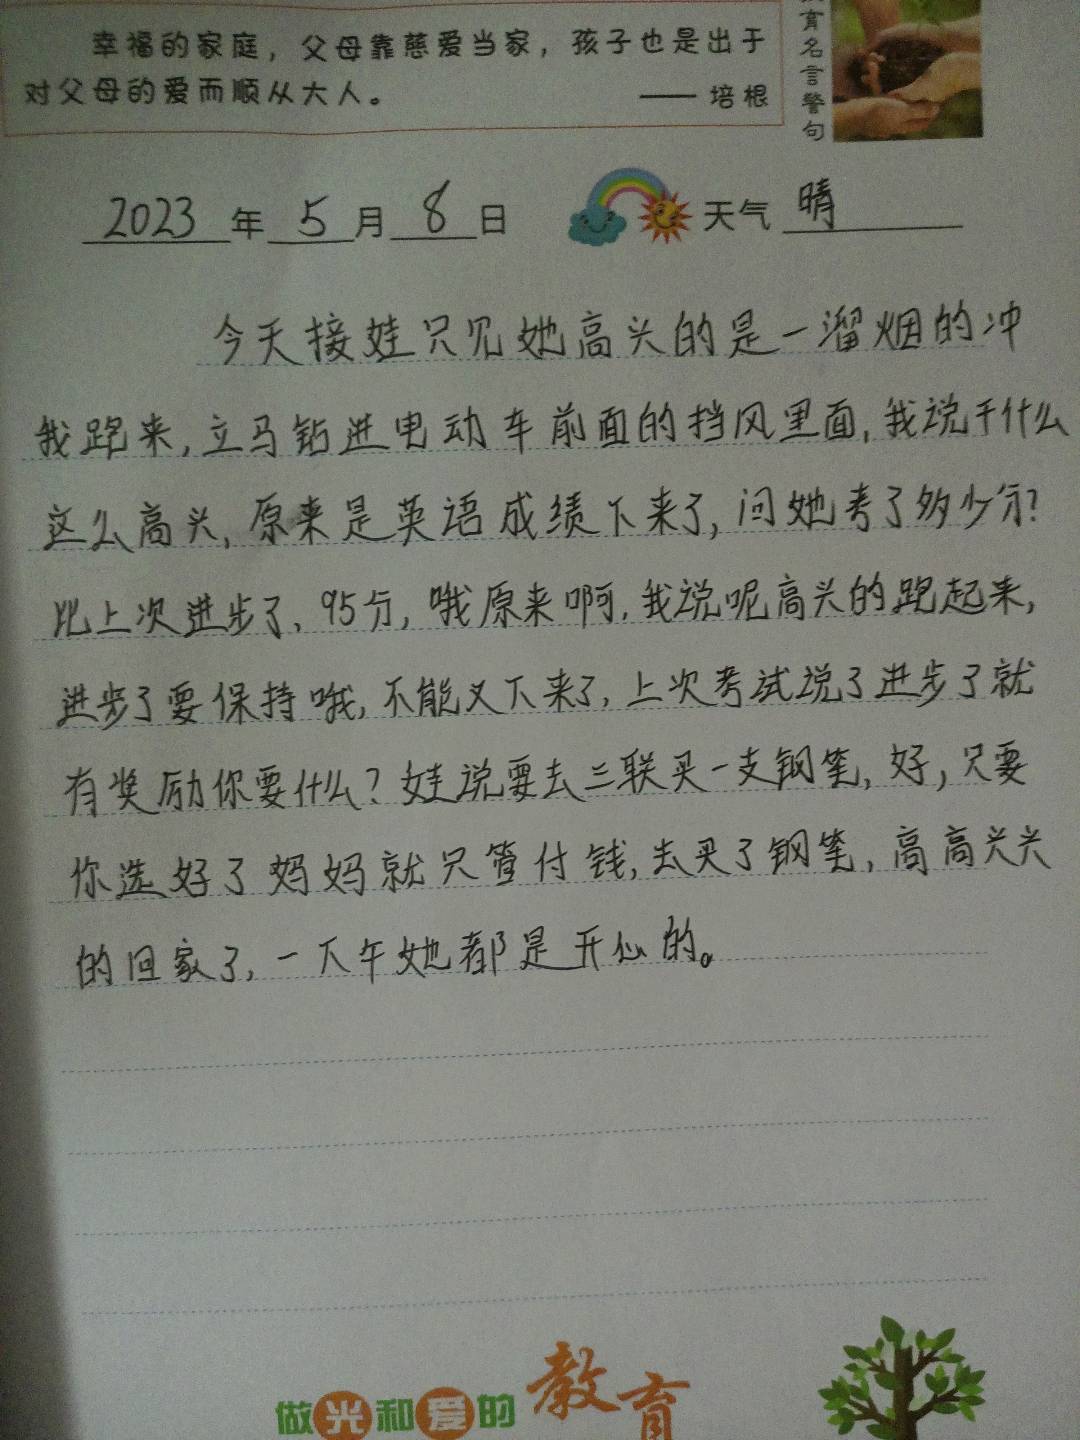 幸福的家庭，父母靠慈爱当家，孩子也是出于
对父母的爱而顺从大人。
—— 培根
育名言警句
2023年5月8日 天气 晴
今天接娃只见她高兴的是一溜烟的冲
我跑来,立马钻进电动车前面的挡风里面,我说干什么
这么高兴,原来是英语成绩下来了,问她考了多少分?
比上次进步了、95分,哦原来啊,我说呢高兴的跑起来,
进步了要保持哦,不能又下来了,上次考试说了进步了就
有奖励你要什么?娃说要去三联买一支钢笔,好,只要
你选好了妈妈就只管付钱,去买了钢笔,高高兴兴
的回家了,一下午她都是开心的。
做光和爱的教育